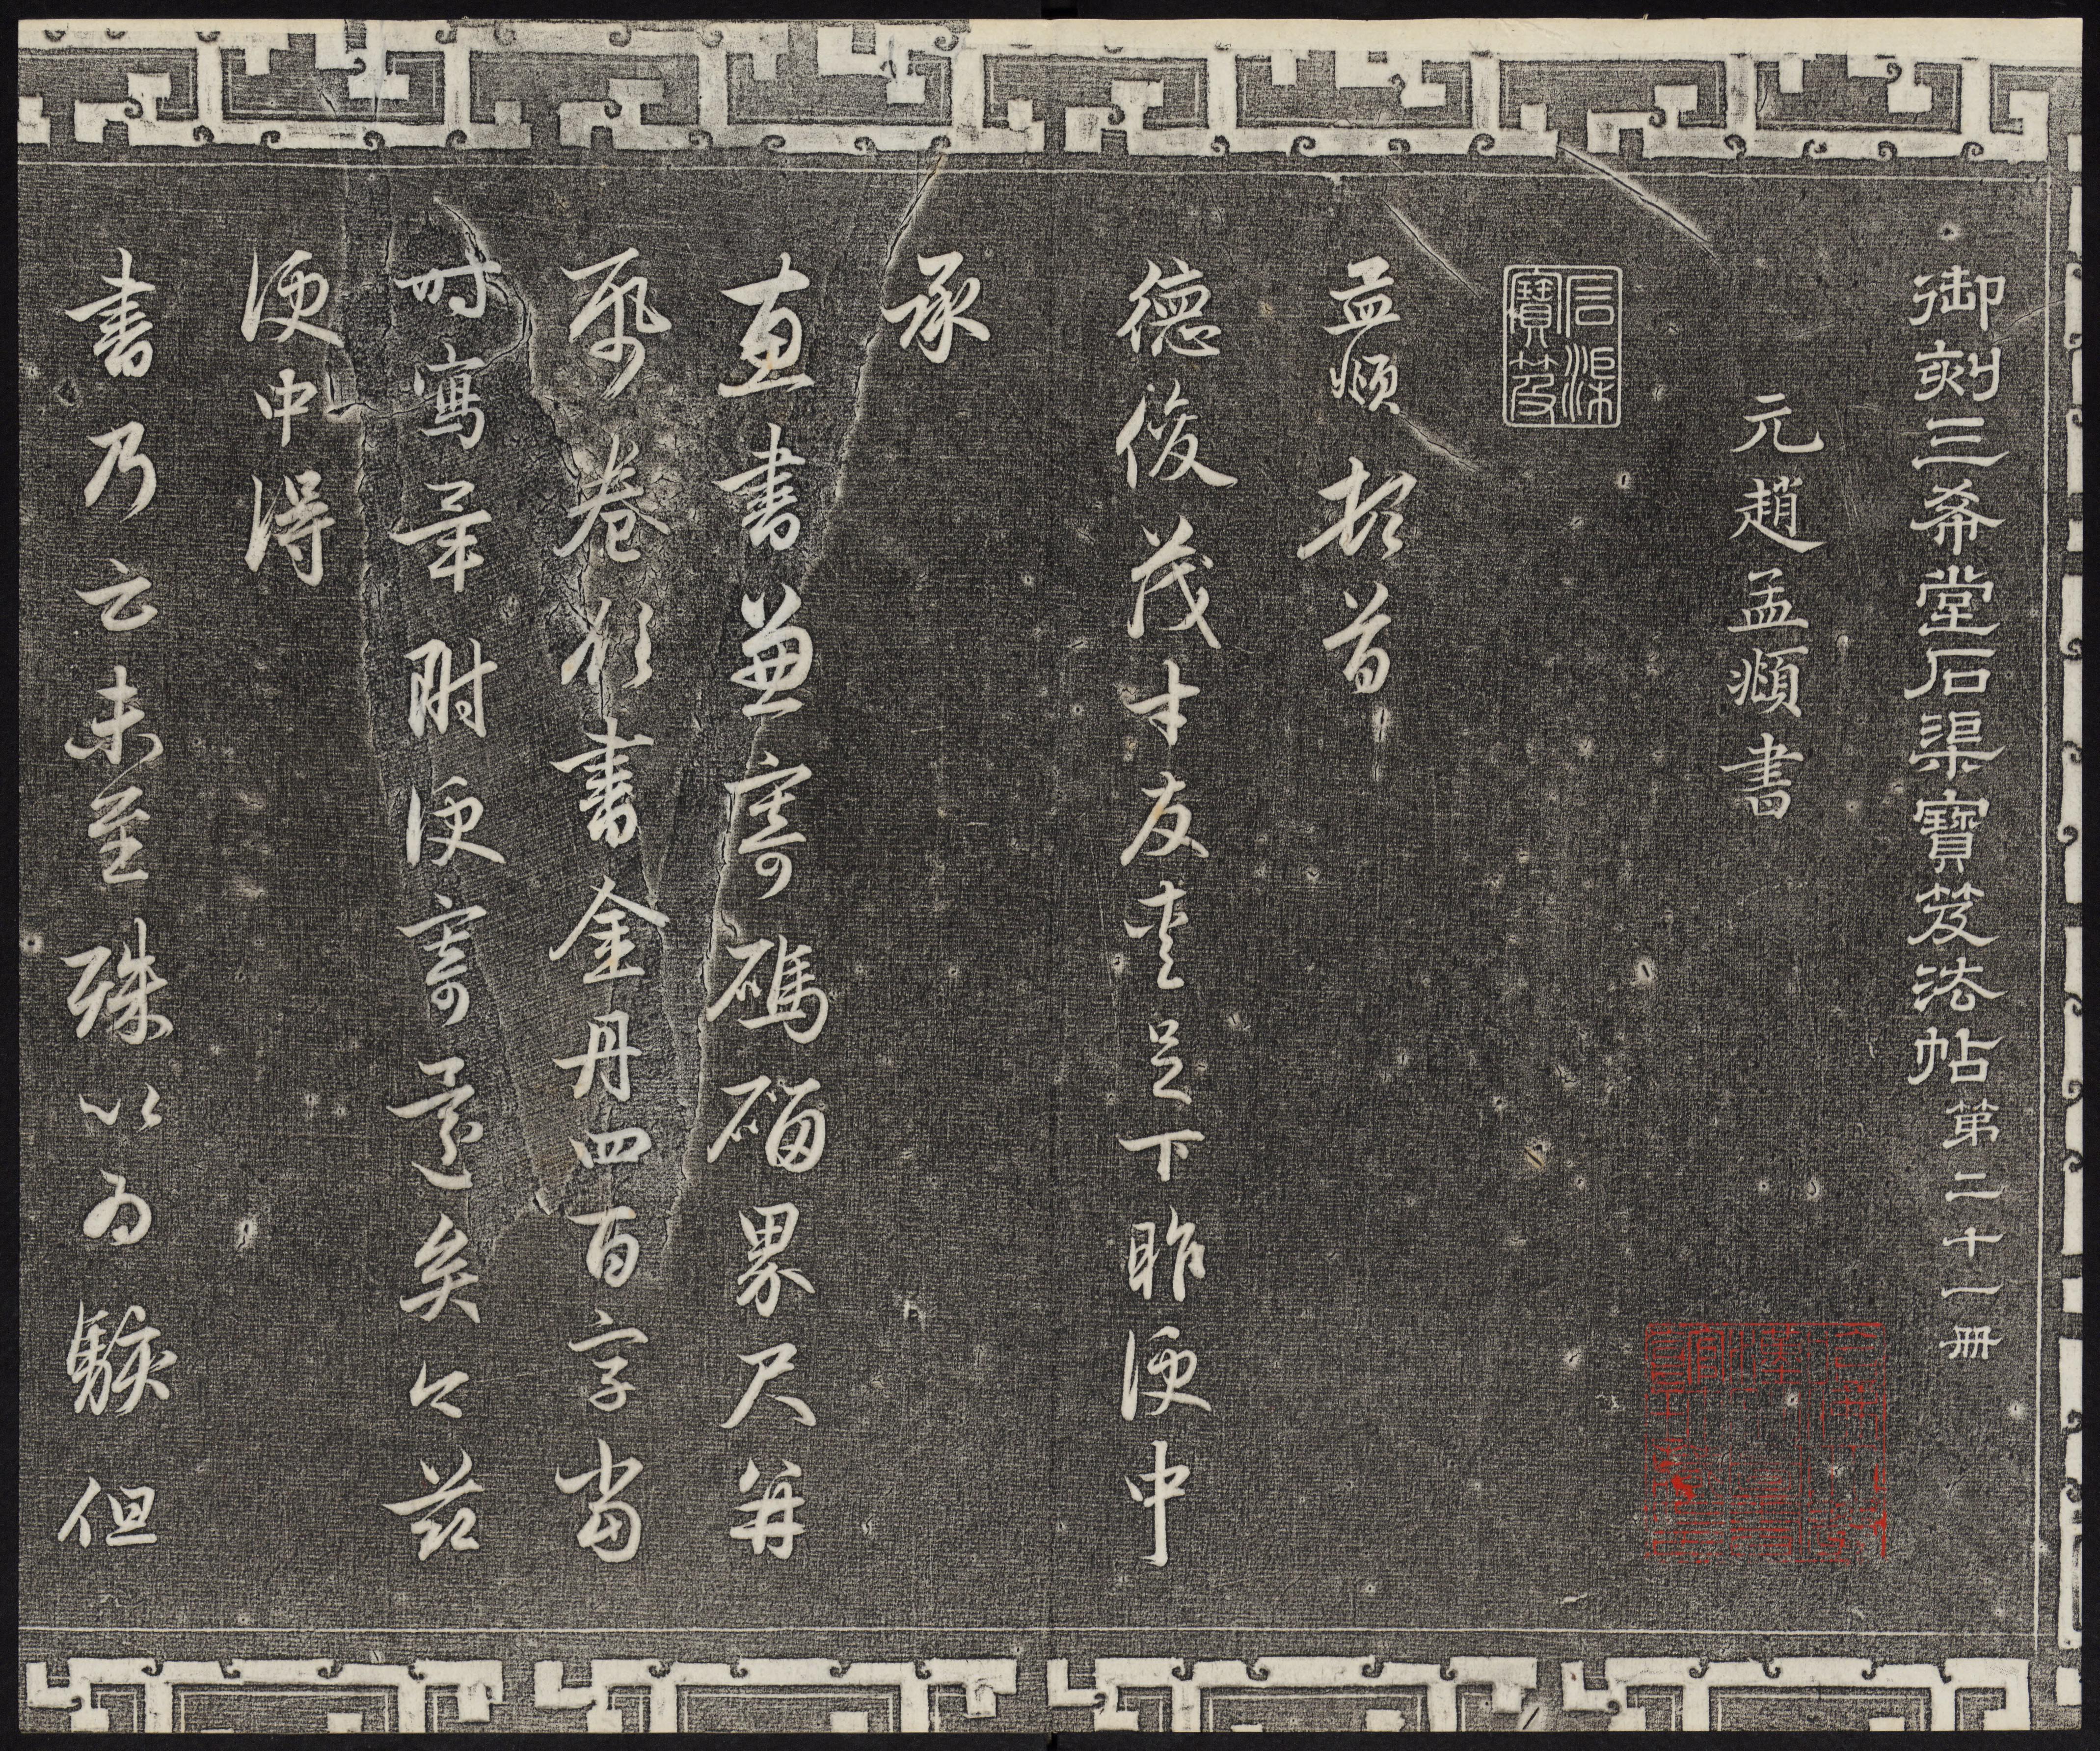 御刻三希堂石渠寶笈法帖第二十一冊
元趙孟頫書
石渠寶笈
孟頫頓首
德俊茂才友愛足下昨便中
承
惠書兼寄碼碯界尺并
帋卷欲書金丹四百字當
時寫畢附便寄還矣今茲
便中得
書乃云未至殊以為駭但